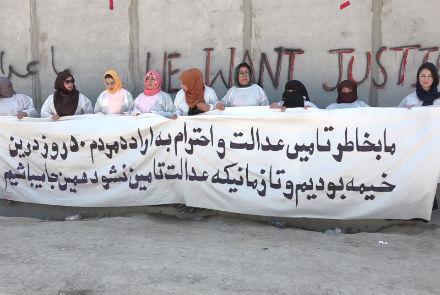 WE WANT JUSTIC
ما بخاطر تامین عدالت و احترام به اراده مردم ۵۰ روز درین
خیمه بودیم و تا زمانیکه عدالت تامین نشود همین جا میباشیم